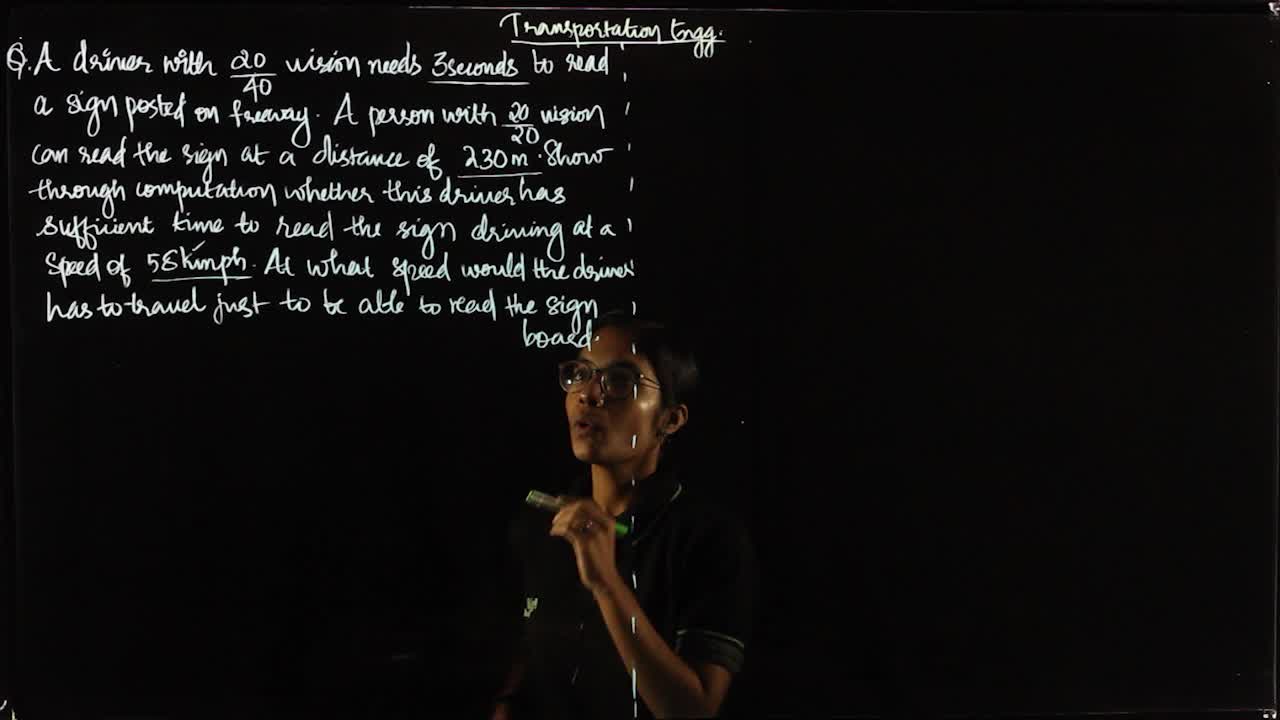 Transportation Engg.
Q. A driver with 20/40 vision needs 3seconds to read
a sign posted on freeway. A person with 20/20 vision
can read the sign at a distance of 230m. Show
through computation whether this driver has
sufficient time to read the sign driving at a
speed of 58kmph. At what speed would the driver
has to travel just to be able to read the sign
board.